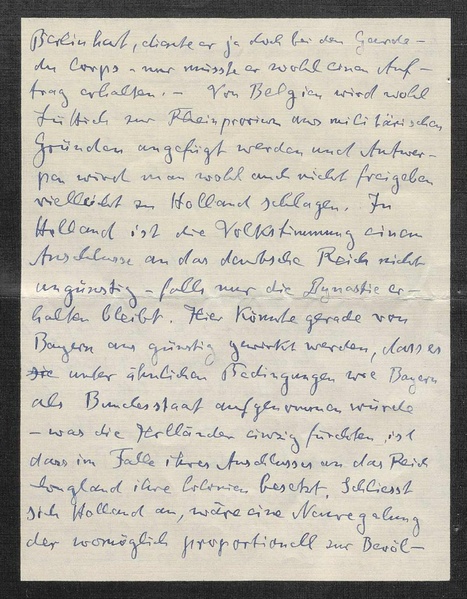 Berlin hat, diente er ja doch bei den Garde-
du Corps - nur müsste er wohl einen Auf-
trag erhalten. - Von Belgien wird wohl
Lüttich zur Rheinprovinz aus militärischen
Gründen angefügt werden und Antwer-
pen wird man wohl auch nicht freigeben
vielleicht zu Holland schlagen. In
Holland ist die Volkstimmung einem
Anschlusse an das deutsche Reich nicht
ungünstig - falls nur die Dynastie er-
halten bleibt. Hier könnte gerade von
Bayern aus günstig gewirkt werden, dass es
unter ähnlichen Bedingungen wie Bayern
als Bundesstaat aufgenommen würde
- was die Holländer einzig fürchten, ist
dass im Falle ihres Anschlusses an das Reich
England ihre Colonien besetzt. Schliesst
sich Holland an, wäre eine Neuregelung
der womöglich proportionell zur Bevöl-